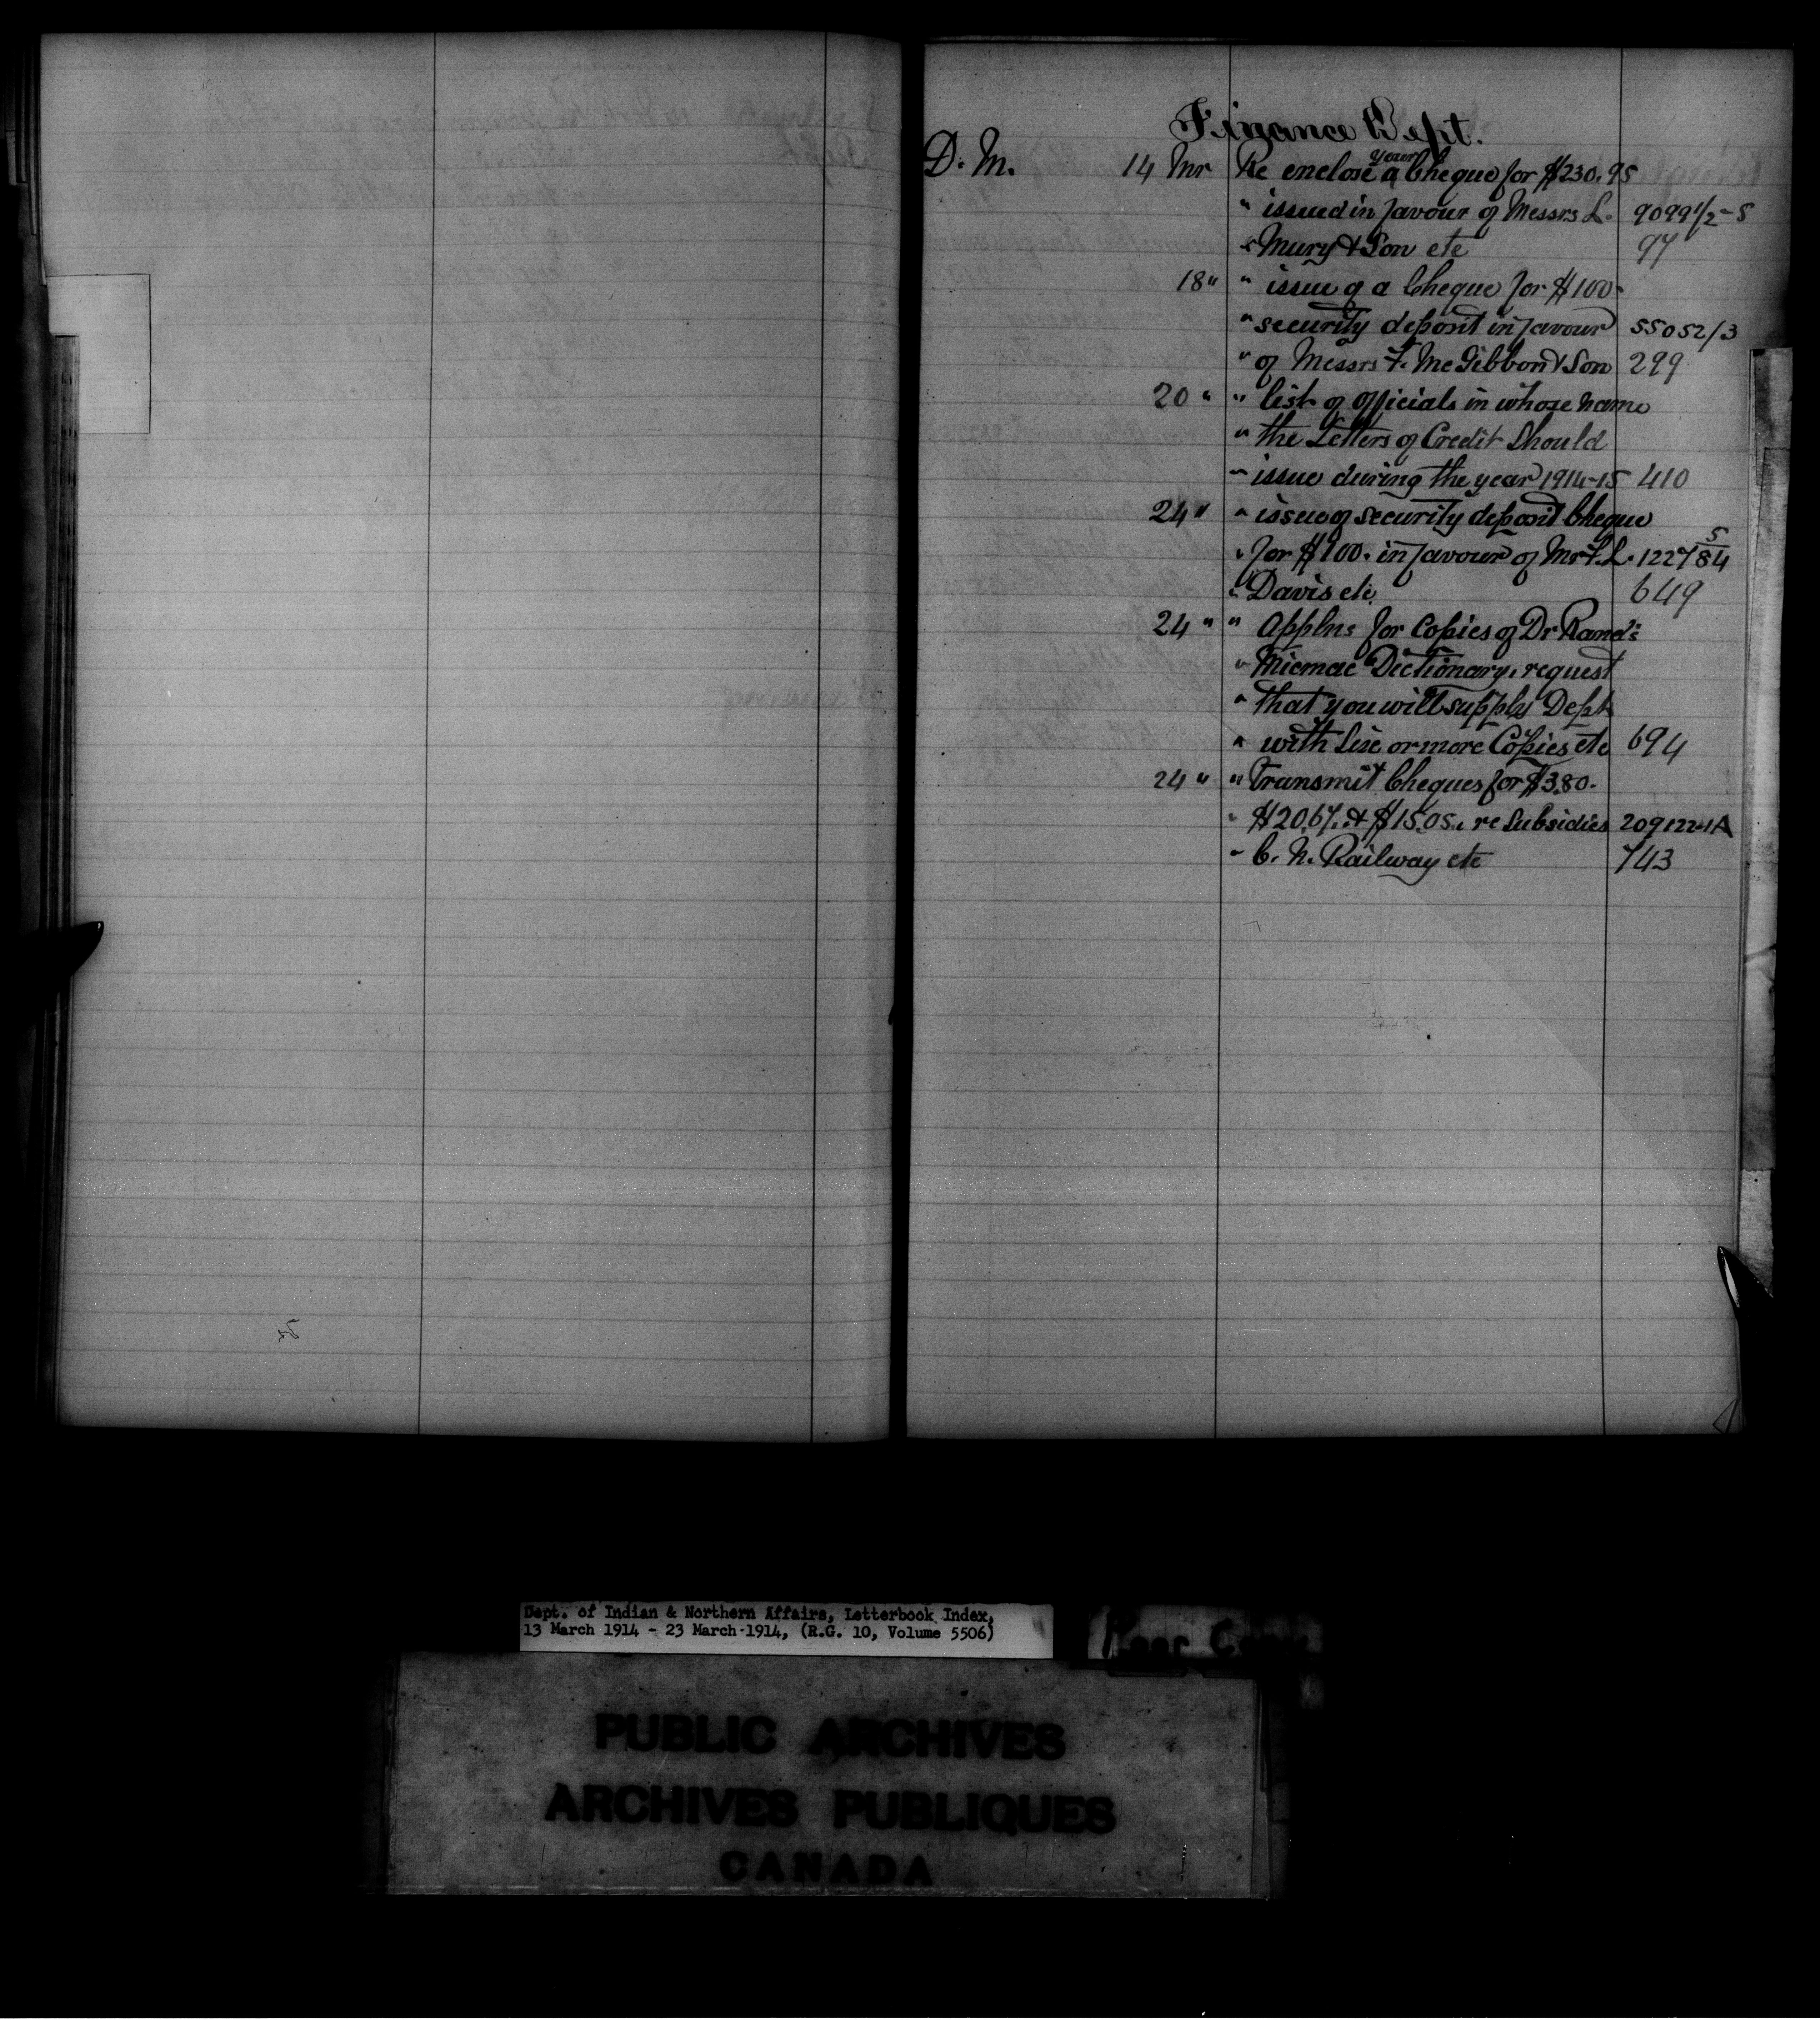 Finance Dept.
D. M. 14 Mr Re enclose your Cheque for $230.95
" issued in favour of Messrs L. 9099 1/2-5
" Mury & Son etc 97
18 " " issue of a Cheque for $100-
" security deposit in favour 55052/3
" of Messrs F. McGibbon & Son 299
20 " " list of Officials in whose name
" the Letters of Credit Should
" issue during the year 1914-15 410
24 " " issue of security deposit Cheque
" for $100. in favour of Mr F. L. 122784 5
" Davis etc 649
24 " " Applns for Copies of Dr Rand's
" Micmac Dictionary, request
" that you will supply Dept
" with Six or more Copies etc 694
24 " " Transmit Cheques for $3.80.
" $20.67. & $15.05. re Subsidies 209122-1A
" C. N. Railway etc 743
Dept. of Indian & Northern Affairs, Letterbook Index,
13 March 1914 - 23 March 1914, (R.G. 10, Volume 5506)
Poor Copy
PUBLIC ARCHIVES
ARCHIVES PUBLIQUES
CANADA